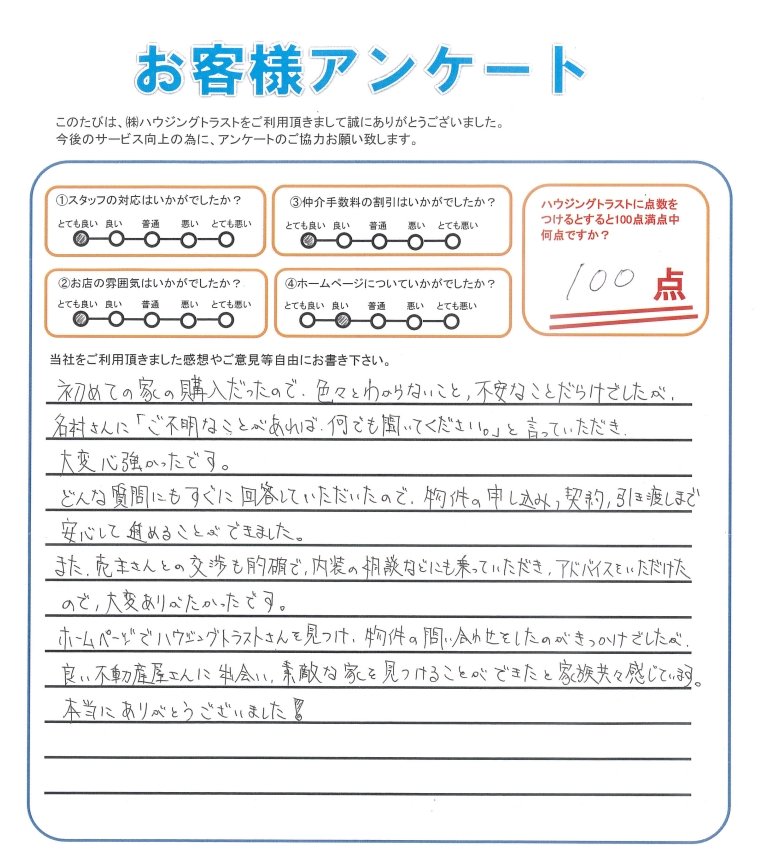 お客様アンケート
このたびは、㈱ハウジングトラストをご利用頂きまして誠にありがとうございました。
今後のサービス向上の為に、アンケートのご協力お願い致します。
①スタッフの対応はいかがでしたか？
とても良い 良い 普通 悪い とても悪い
③仲介手数料の割引はいかがでしたか？
とても良い 良い 普通 悪い とても悪い
ハウジングトラストに点数を
つけるとすると100点満点中
何点ですか？
100 点
②お店の雰囲気はいかがでしたか？
とても良い 良い 普通 悪い とても悪い
④ホームページについていかがでしたか？
とても良い 良い 普通 悪い とても悪い
当社をご利用頂きました感想やご意見等自由にお書き下さい。
初めての家の購入だったので、色々とわからないこと、不安なことだらけでしたが、
名村さんに「ご不明なことがあれば、何でも聞いてください。」と言っていただき、
大変心強かったです。
どんな質問にもすぐに回答していただいたので、物件の申し込み、契約、引き渡しまで
安心して進めることができました。
また、売主さんとの交渉も的確で、内装の相談などにも乗っていただき、アドバイスをいただけた
ので、大変ありがたかったです。
ホームページでハウジングトラストさんを見つけ、物件の問い合わせをしたのがきっかけでしたが、
良い不動産屋さんに出会い、素敵な家を見つけることができたと家族共々感じています。
本当にありがとうございました！